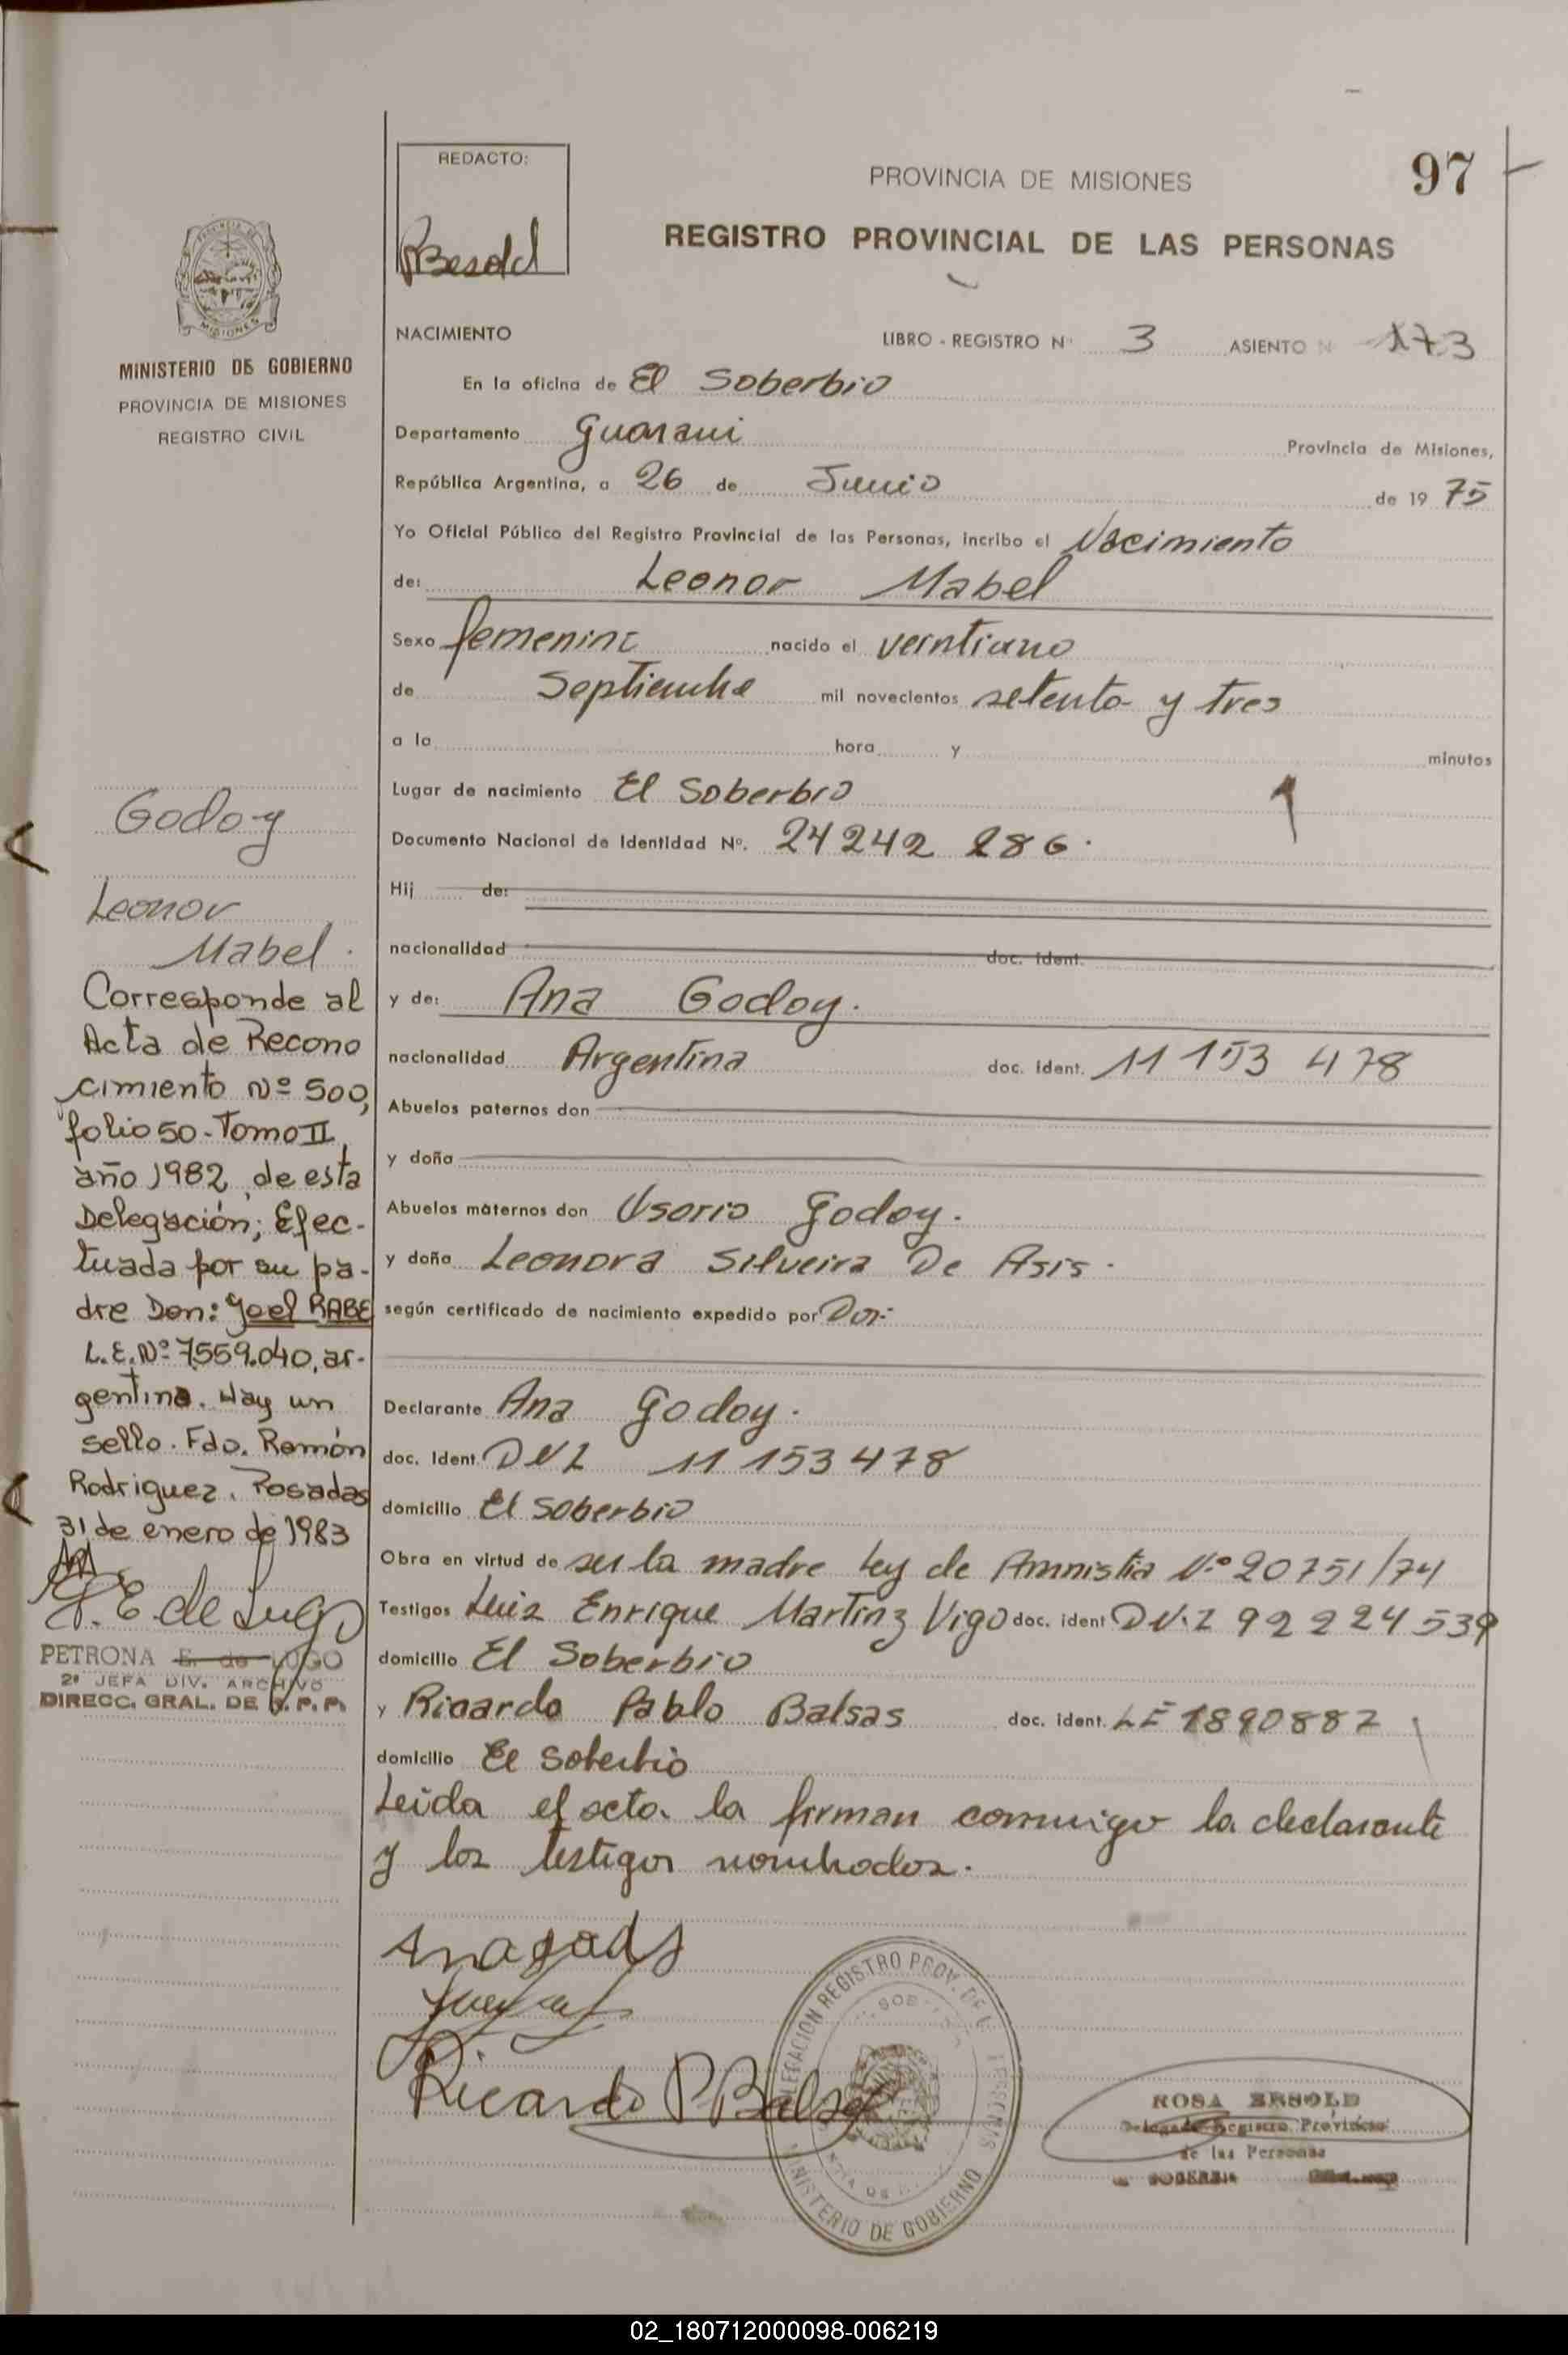 REDACTO:
Besold
PROVINCIA DE MISIONES
97
REGISTRO PROVINCIAL DE LAS PERSONAS
MISIONES
MINISTERIO DE GOBIERNO
PROVINCIA DE MISIONES
REGISTRO CIVIL
NACIMIENTO LIBRO - REGISTRO Nº 3 ASIENTO N 173
En la oficina de El Soberbio
Departamento Guarani Provincia de Misiones,
República Argentina, a 26 de Junio de 19 75
Yo Oficial Público del Registro Provincial de las Personas, incribo el Nacimiento
de: Leonor Mabel
Sexo femenino nacido el veintiuno
de Septiembre mil novecientos setenta y tres
a la hora y minutos
Lugar de nacimiento El Soberbio
Documento Nacional de Identidad Nº. 24 242 286.
Hij de:
nacionalidad doc. ident.
y de: Ana Godoy.
nacionalidad Argentina doc. ident. 11 153 478
Abuelos paternos don
y doña
Abuelos maternos don Usorio Godoy.
y doña Leonora Silveira De Asis.
según certificado de nacimiento expedido por
Declarante Ana Godoy.
doc. Ident. DNI 11 153 478
domicilio El Soberbio
Obra en virtud de ser la madre Ley de Amnistia Nº 20751/74
Testigos Luis Enrique Martinz Vigo doc. ident DN.I 92 224 539
domicilio El Soberbio
y Ricardo Pablo Balsas doc. ident. LE 1890887
domicilio El Soberbio
Leida el acta la firman conmigo la declarante
y los testigos nombrados.
Godoy
Leonor
Mabel.
Corresponde al
Acta de Recono
cimiento Nº 500,
folio 50 - Tomo II,
año 1982, de esta
Delegación; Efec-
tuada por su pa-
dre Don: Joel RABE
L.E. Nº 7559.040, ar-
gentino. Hay un
sello. Fdo. Ramón
Rodriguez. Posadas
31 de enero de 1983
P. E de Lugo
PETRONA E. de LUGO
2ª JEFA DIV. ARCHIVO
DIRECC. GRAL. DE R. P. P.
Ricardo P Balsas
DELEGACION REGISTRO PROV. DE L PERSONAS
MINISTERIO DE GOBIERNO
ROSA BESOLD
Delegada Registro Provincial
de las Personas
02_180712000098-006219